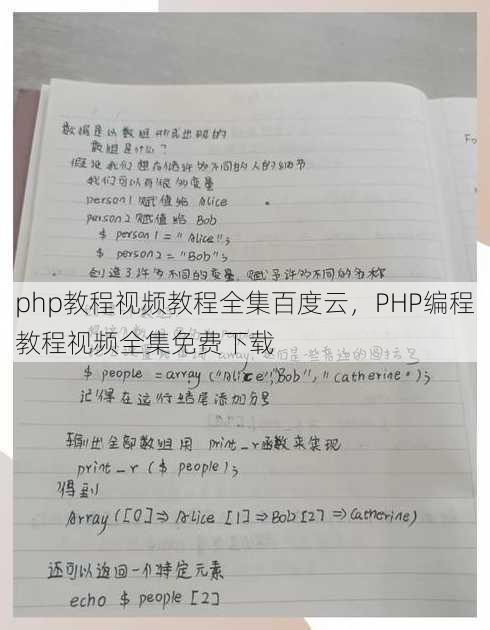 数据是以数组形式出现的
数组是什么?
假设我们想存储许多不同的人的细节
我们可以有很多变量
person1 赋值给 Alice
person2 赋值给 Bob
$ person1 = "Alice";
$ person2 = "Bob";
创造了许多不同的变量, 赋予许多不同的名称
php教程视频教程全集百度云，PHP编程
教程视频全集免费下载
$ people = array ("Alice","Bob"," catherine");
记得在这行结尾添加分号
输出全部数组用 print_r函数来实现
print_r ($ people);
得到
Array ([0]⇒Alice [1]⇒Bob [2]⇒Catherine)
还可以返回一个特定元素
echo $ people [2]